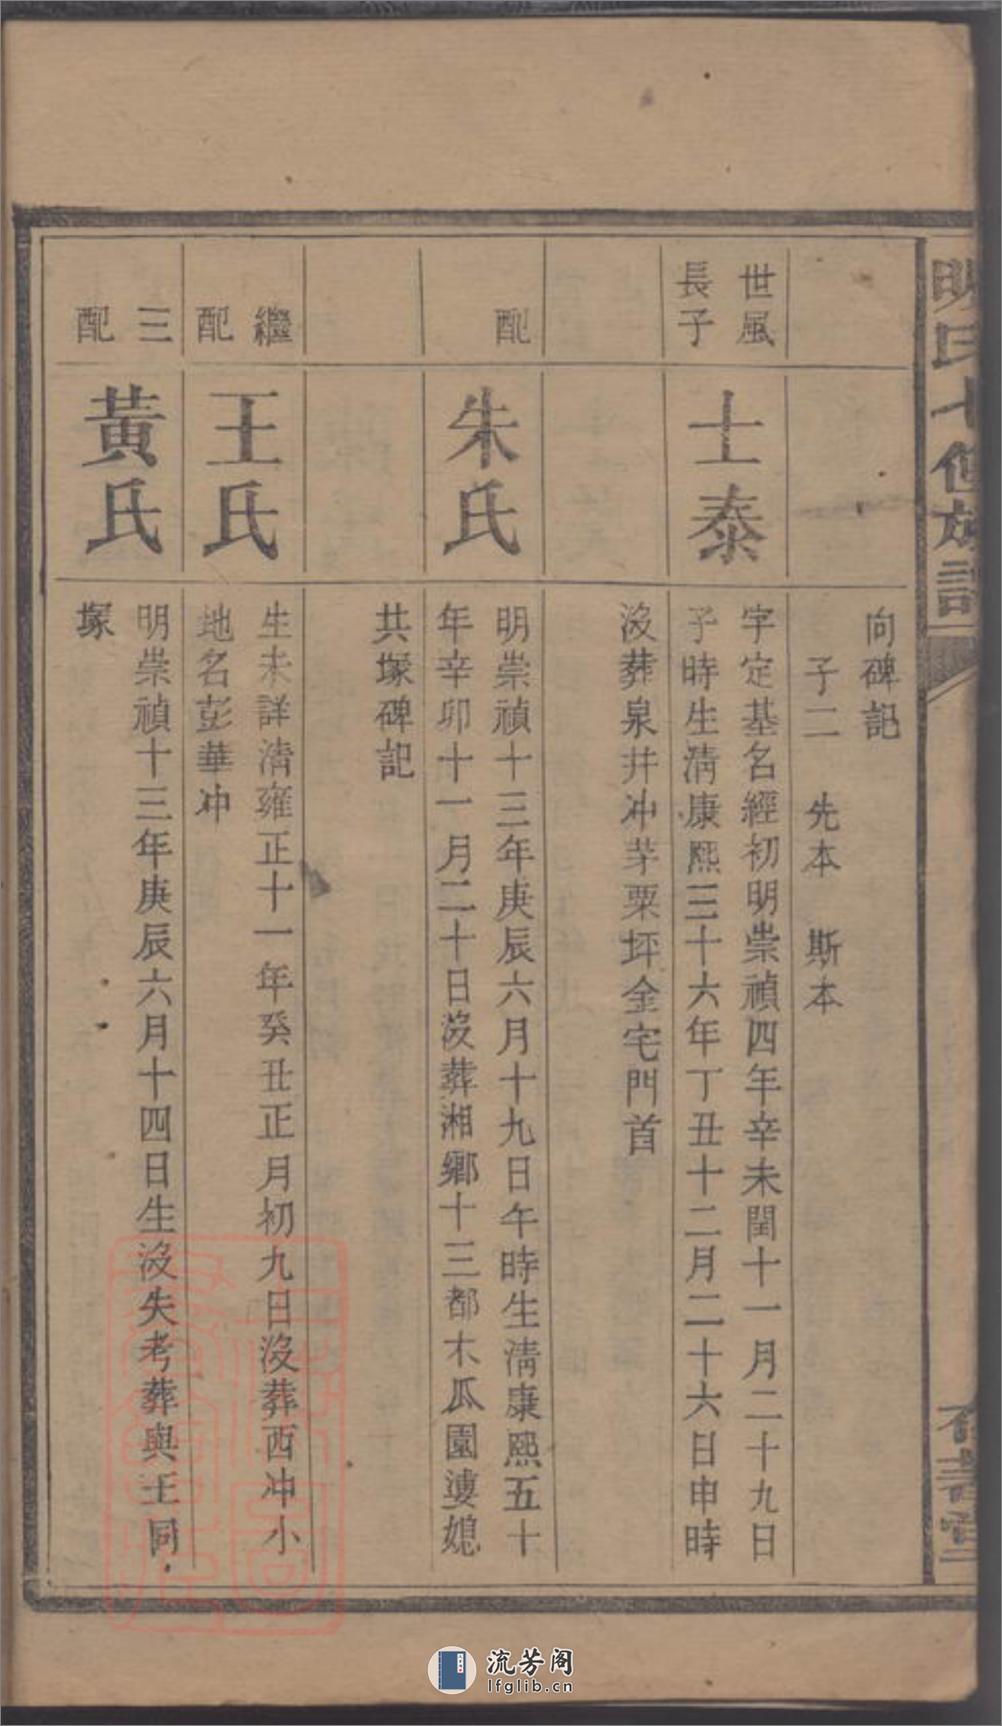 氏七修族譜
向碑記
子二 先本 斯本
世風
長子
士泰
字定基名經初明崇禎四年辛未閏十一月二十九日
子時生淸康熙三十六年丁丑十二月二十六日申時
沒葬泉井冲芓粟坪金宅門首
配
朱氏
明崇禎十三年庚辰六月十九日午時生淸康熙五十
年辛卯十一月二十日沒葬湘鄉十三都木瓜園婆媳
共塚碑記
繼
配
王氏
生未詳淸雍正十一年癸丑正月初九日沒葬西冲小
地名彭華冲
三
配
黃氏
明崇禎十三年庚辰六月十四日生沒失考葬與王同
塚
流芳阁
lfglib.cn